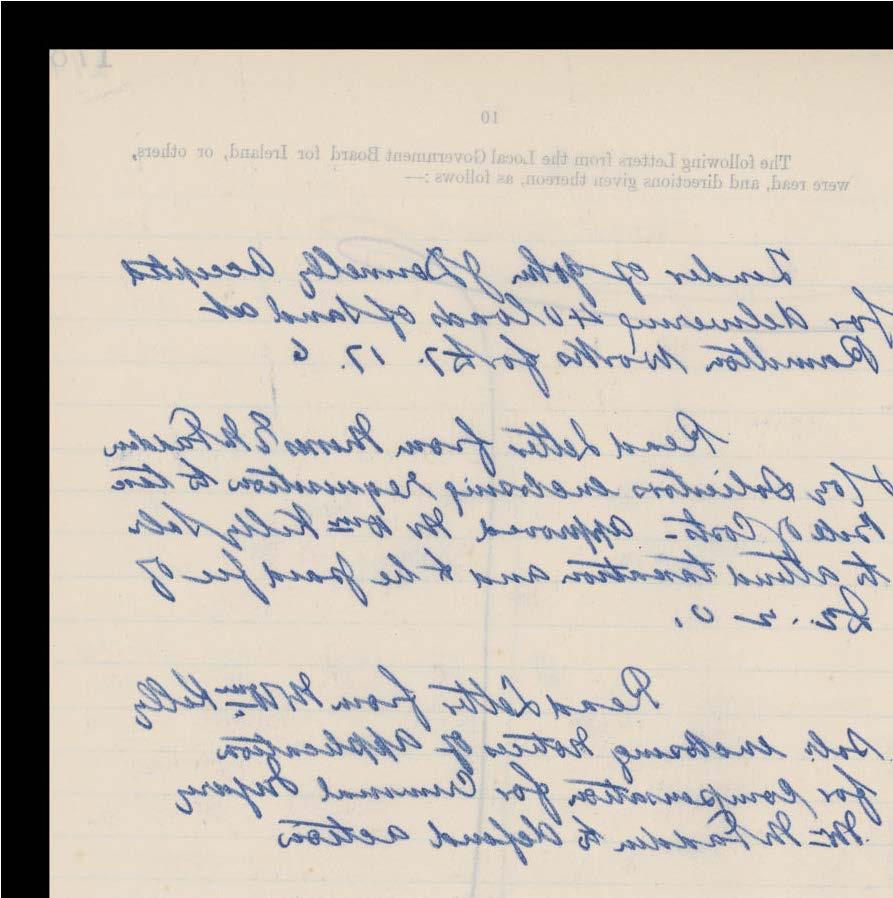 178
10
The following Letters from the Local Government Board for Ireland, or others,
were read, and directions given thereon, as follows :—
Tender of John J Donnelly accepted
for delivering 40 loads of sand at
Ramelton Works for £7. 17. 6
Read Letter from
for Solicitors enclosing requisition to tax
Bill of Costs - approved Mr Wm Kelly Solr
to attend taxation and to be paid fee of
£2. 2. 0.
Read Letter from Mr Wm Kelly
Solr enclosing Notice of Application
for Compensation for Criminal Injury
Mr McFadden to defend action